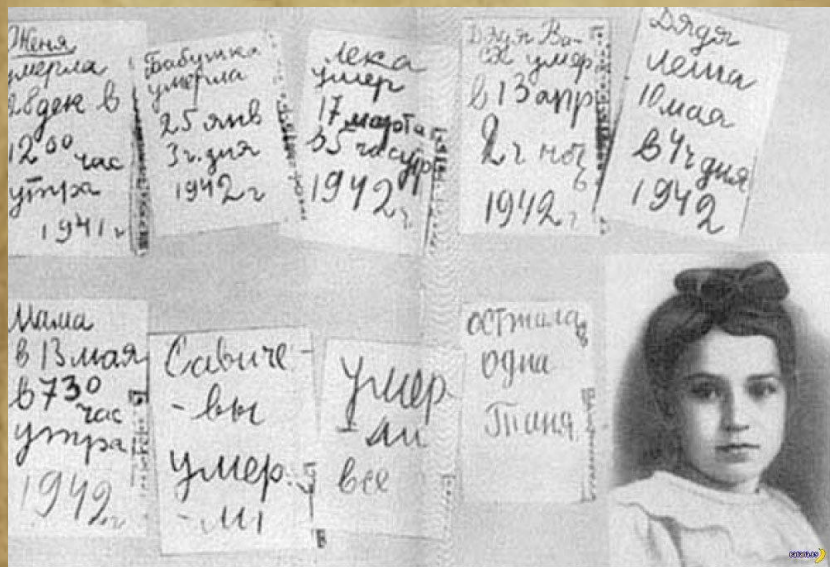 Женя
умерла
28 дек в
12 00 час
утра
1941 г
Бабушка
умерла
25 янв
3 ч. дня
1942 г
Лека
умер
17 марта
в 5 час утр
1942 г
Дядя Ва-
ся умер
в 13 апр
2 ч ночь
1942 г
Дядя
Леша
10 мая
в 4 ч дня
1942
Мама
в 13 мая
в 7 30
час
утра
1942 г
Савиче
-вы
умер
-ли
умер
-ли
все
осталась
одна
Таня